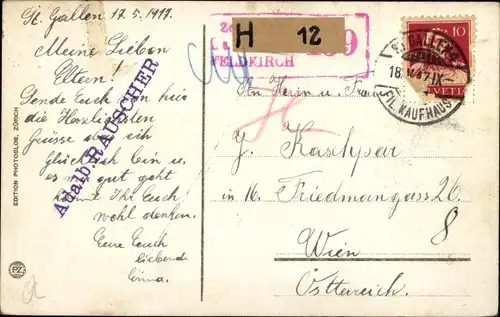 St. Gallen 17.5.1917.
Meine Lieben
Eltern!
Sende Euch von hier
die Herzlichsten
Grüsse das ich
Glücklich bin u.
es mir gut geht
könnt Ihr Euch
wohl denken.
Eure Euch
liebende
Erna.
Adalb. RAUSCHER
EDITION PHOTOGLOB, ZÜRICH
PZ
H 12
FELDKIRCH
10
ST. GALLEN
FIL. KAUFHAUS
An Herrn u. Frau
J. Kaschpar
in 16. Friedmangass 26
8
Wien
Österreich.